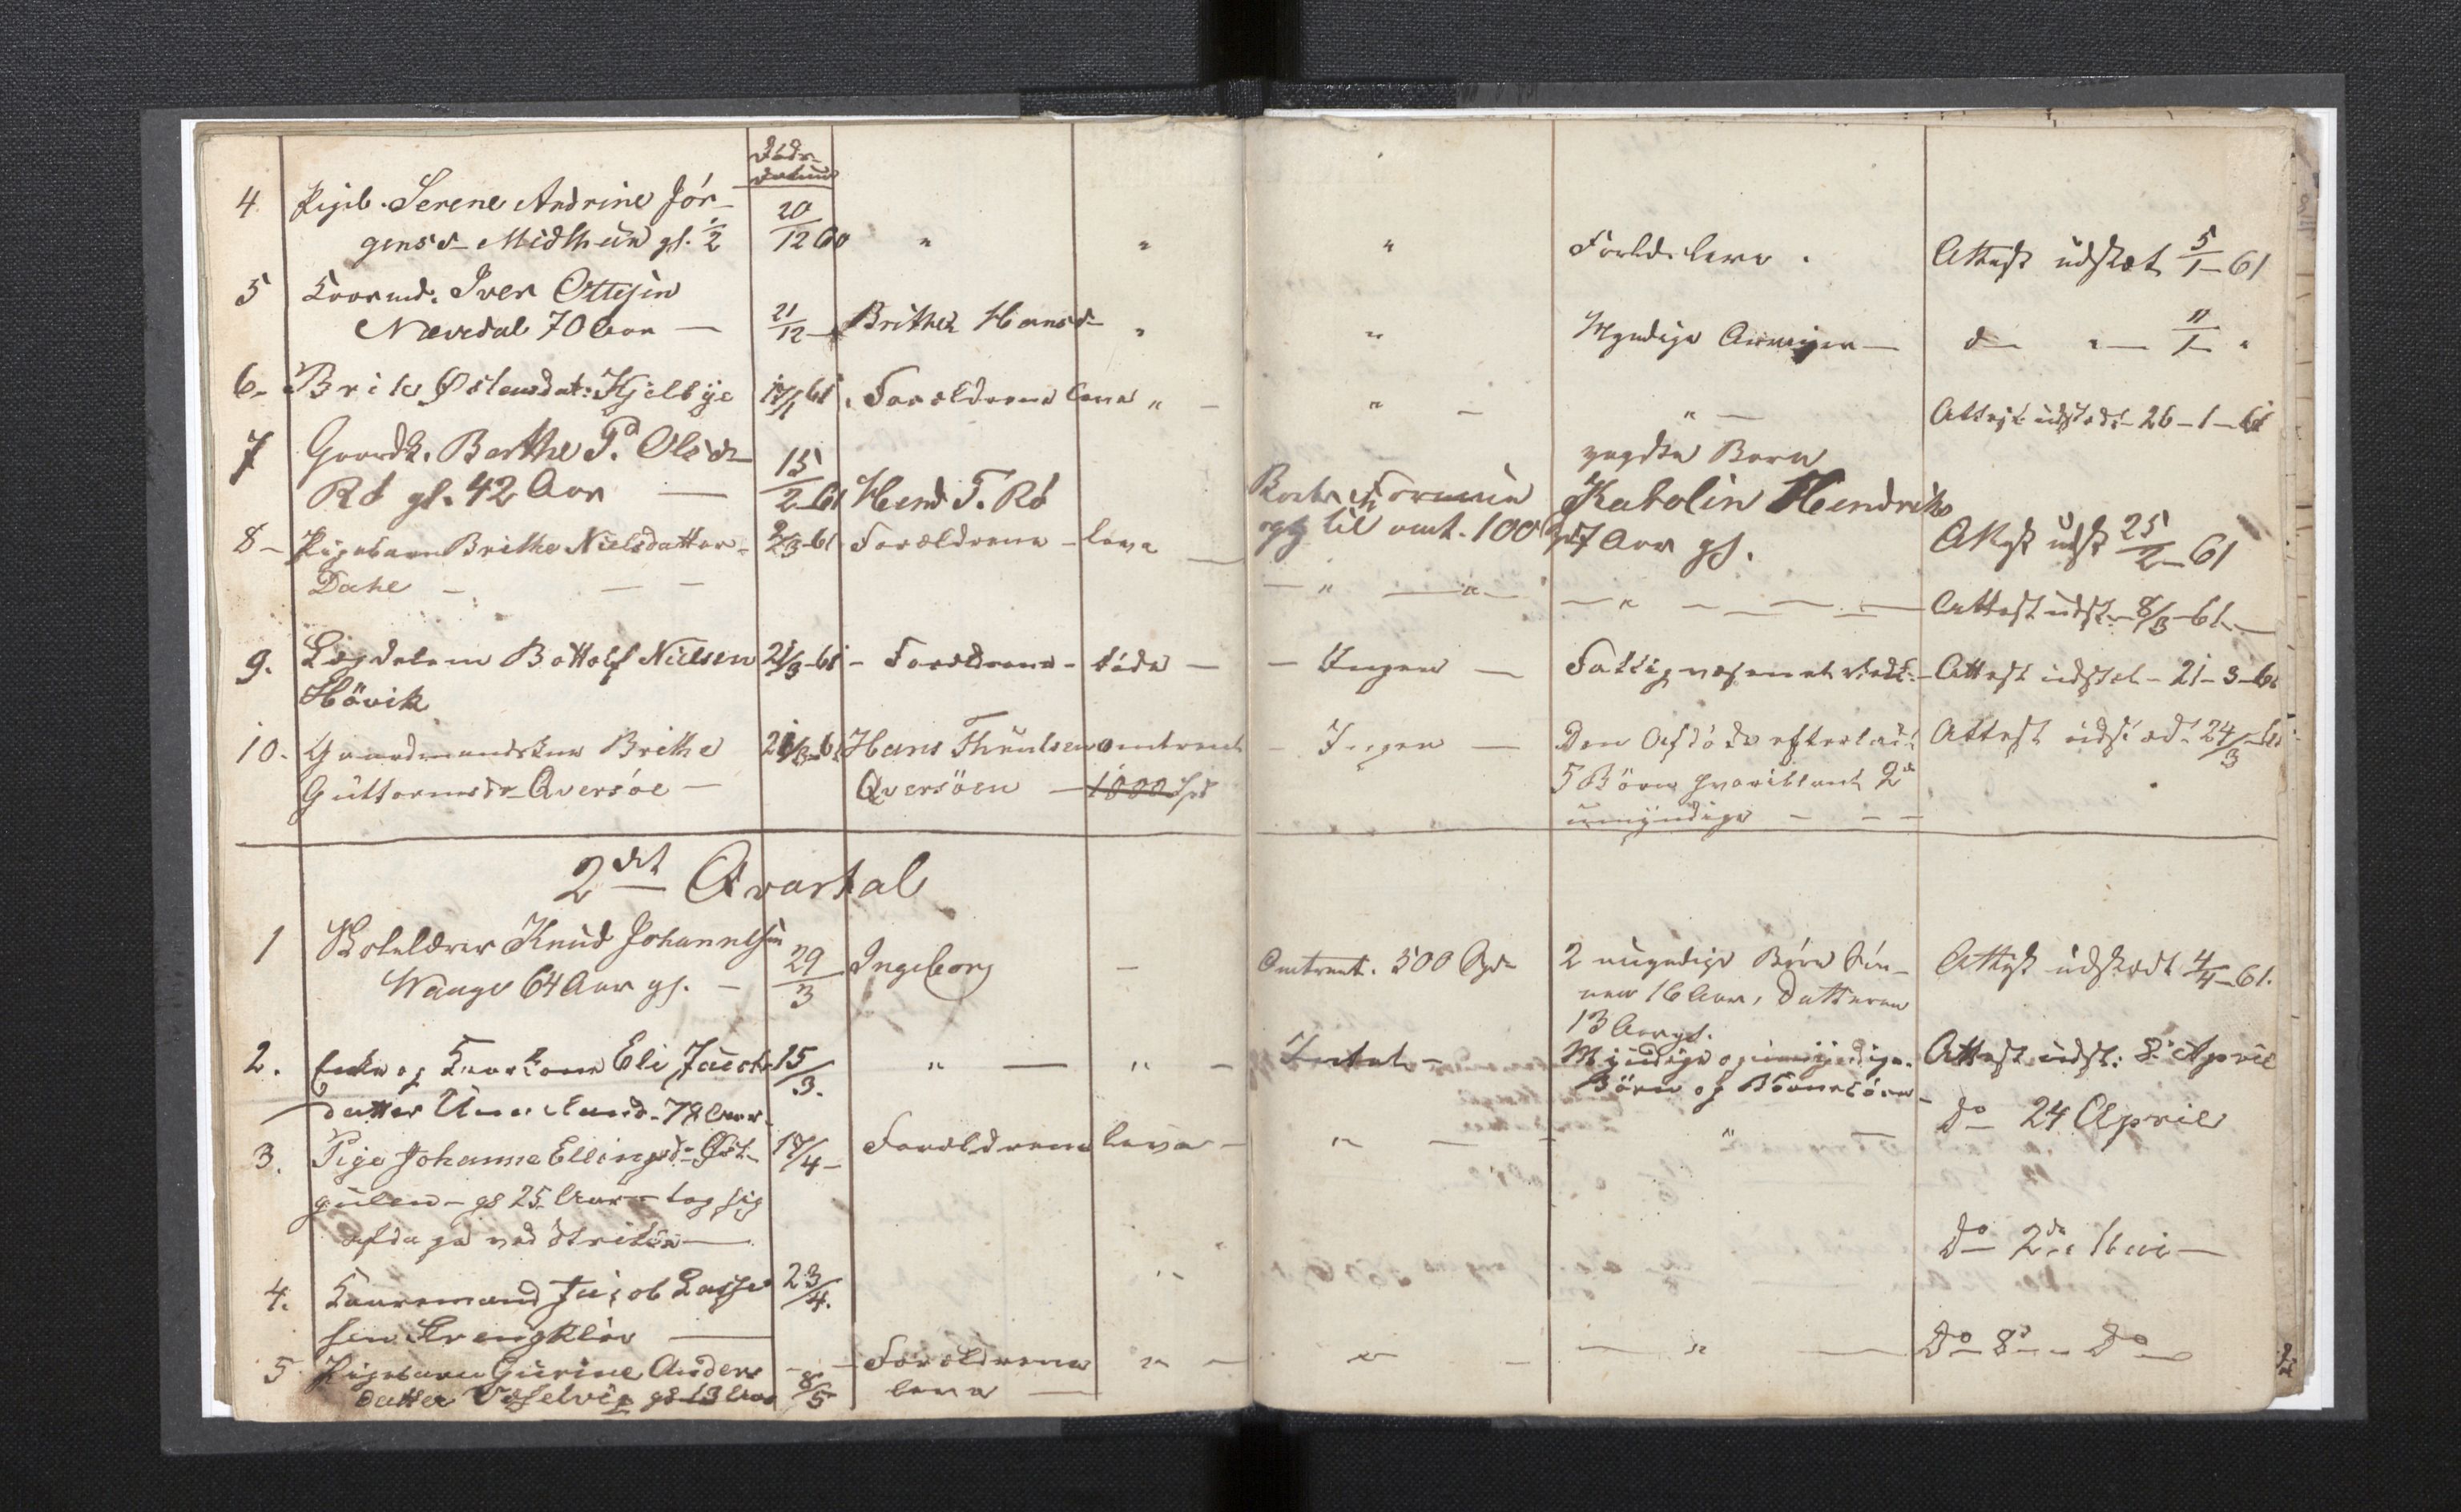 Døds-
datum
4 Pigeb. Serene Andrine Jör-
gensd. Midthun gl. ½ 20/12 60 " " " Forld. leve. Attest udstæt 5/1-61
5 Kaarmd. Iver Ottesen
Nævdal 70 Aar — 21/12 - Brithe Hansd- " " Myndige Arvinger — d— " — 11/1 "
6- Brite Østensdat: Kjelbye 17/1 61. Forældrene leve " - " - " - Attest udstedt - 26-1-61
7 Gaardk. Barthe P.d Olsd-
Rö gl. 42 Aar — 15/2-61 Hend T. Rö Boets Formue
til omt. 100 Spd yngste Barn
Katolin Hendriks
7 Aar gl. Attest udst 25/2-61
8 - Pigebarn Brithe Nielsdatter -
Dahle - - - 2/3-61 Forældrene - leve — " — " — — " — — — Attest udst. - 8/3-61. —
9. Lægdslem Bottolf Nielsen
Hövik 21/3-61 - Forældrene - döde — - Ingen — Fattigvæsenet - Attest udstet - 21-3-61
10. Gaardmandskone Brithe
Guttormsdr Qversöe — 21/3-61 Hans Thuulsen
Qversöen — omtrent
1000 Spd - Ingen — Den Afdöde efterlod
5 Börn hvoriblandt 2
umyndige - - - Attest udstædt 24/3-61
2det Qvartal
1 Skolelærer Knud Johannessen
Wange 64 Aar gl. - 29/3 Ingeborg - Omtrent. 500 Spd 2 umyndige Börn Sön-
nen 16 Aar, Datteren
13 Aar gl. Attest udstædt 4/4-61.
2. Enke og Kaarkone Eli Jacobs
datter 78 Aar. 15/3. " — " - Intet - Myndige og umyndige
Börn og Börnebörn - Attest udst: 8. April
3. Pige Johanne Ellingsd. Öst-
gulen - gl 25 Aar - tog sig
af dage ved 17/4 - Forældrene leve - " — - " — do 24 April
4. Kaaremand Jacob Lasse-
sen — 23/4. " do 2den Mai —
5. Pigebarn Gurine Anders
datter Vesselvig gl 13 Aar - 8/5 - Forældrene
leve — " - " - — " — Do 8de - Do